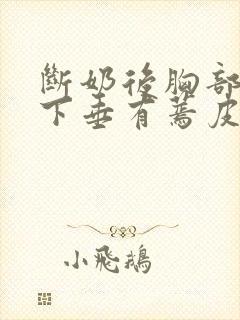 斷奶後胸部
下垂有蔫皮
小飛鵝